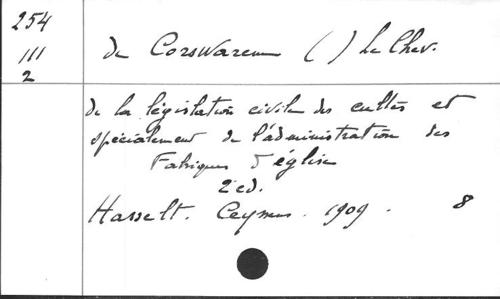 254
III
2
de Corswarem ( ) Le Chev.
de la législation civile des cultes et
spécialement de l'administration des
Fabriques d'église
2 ed.
Hasselt. Ceysens. 1909. 8